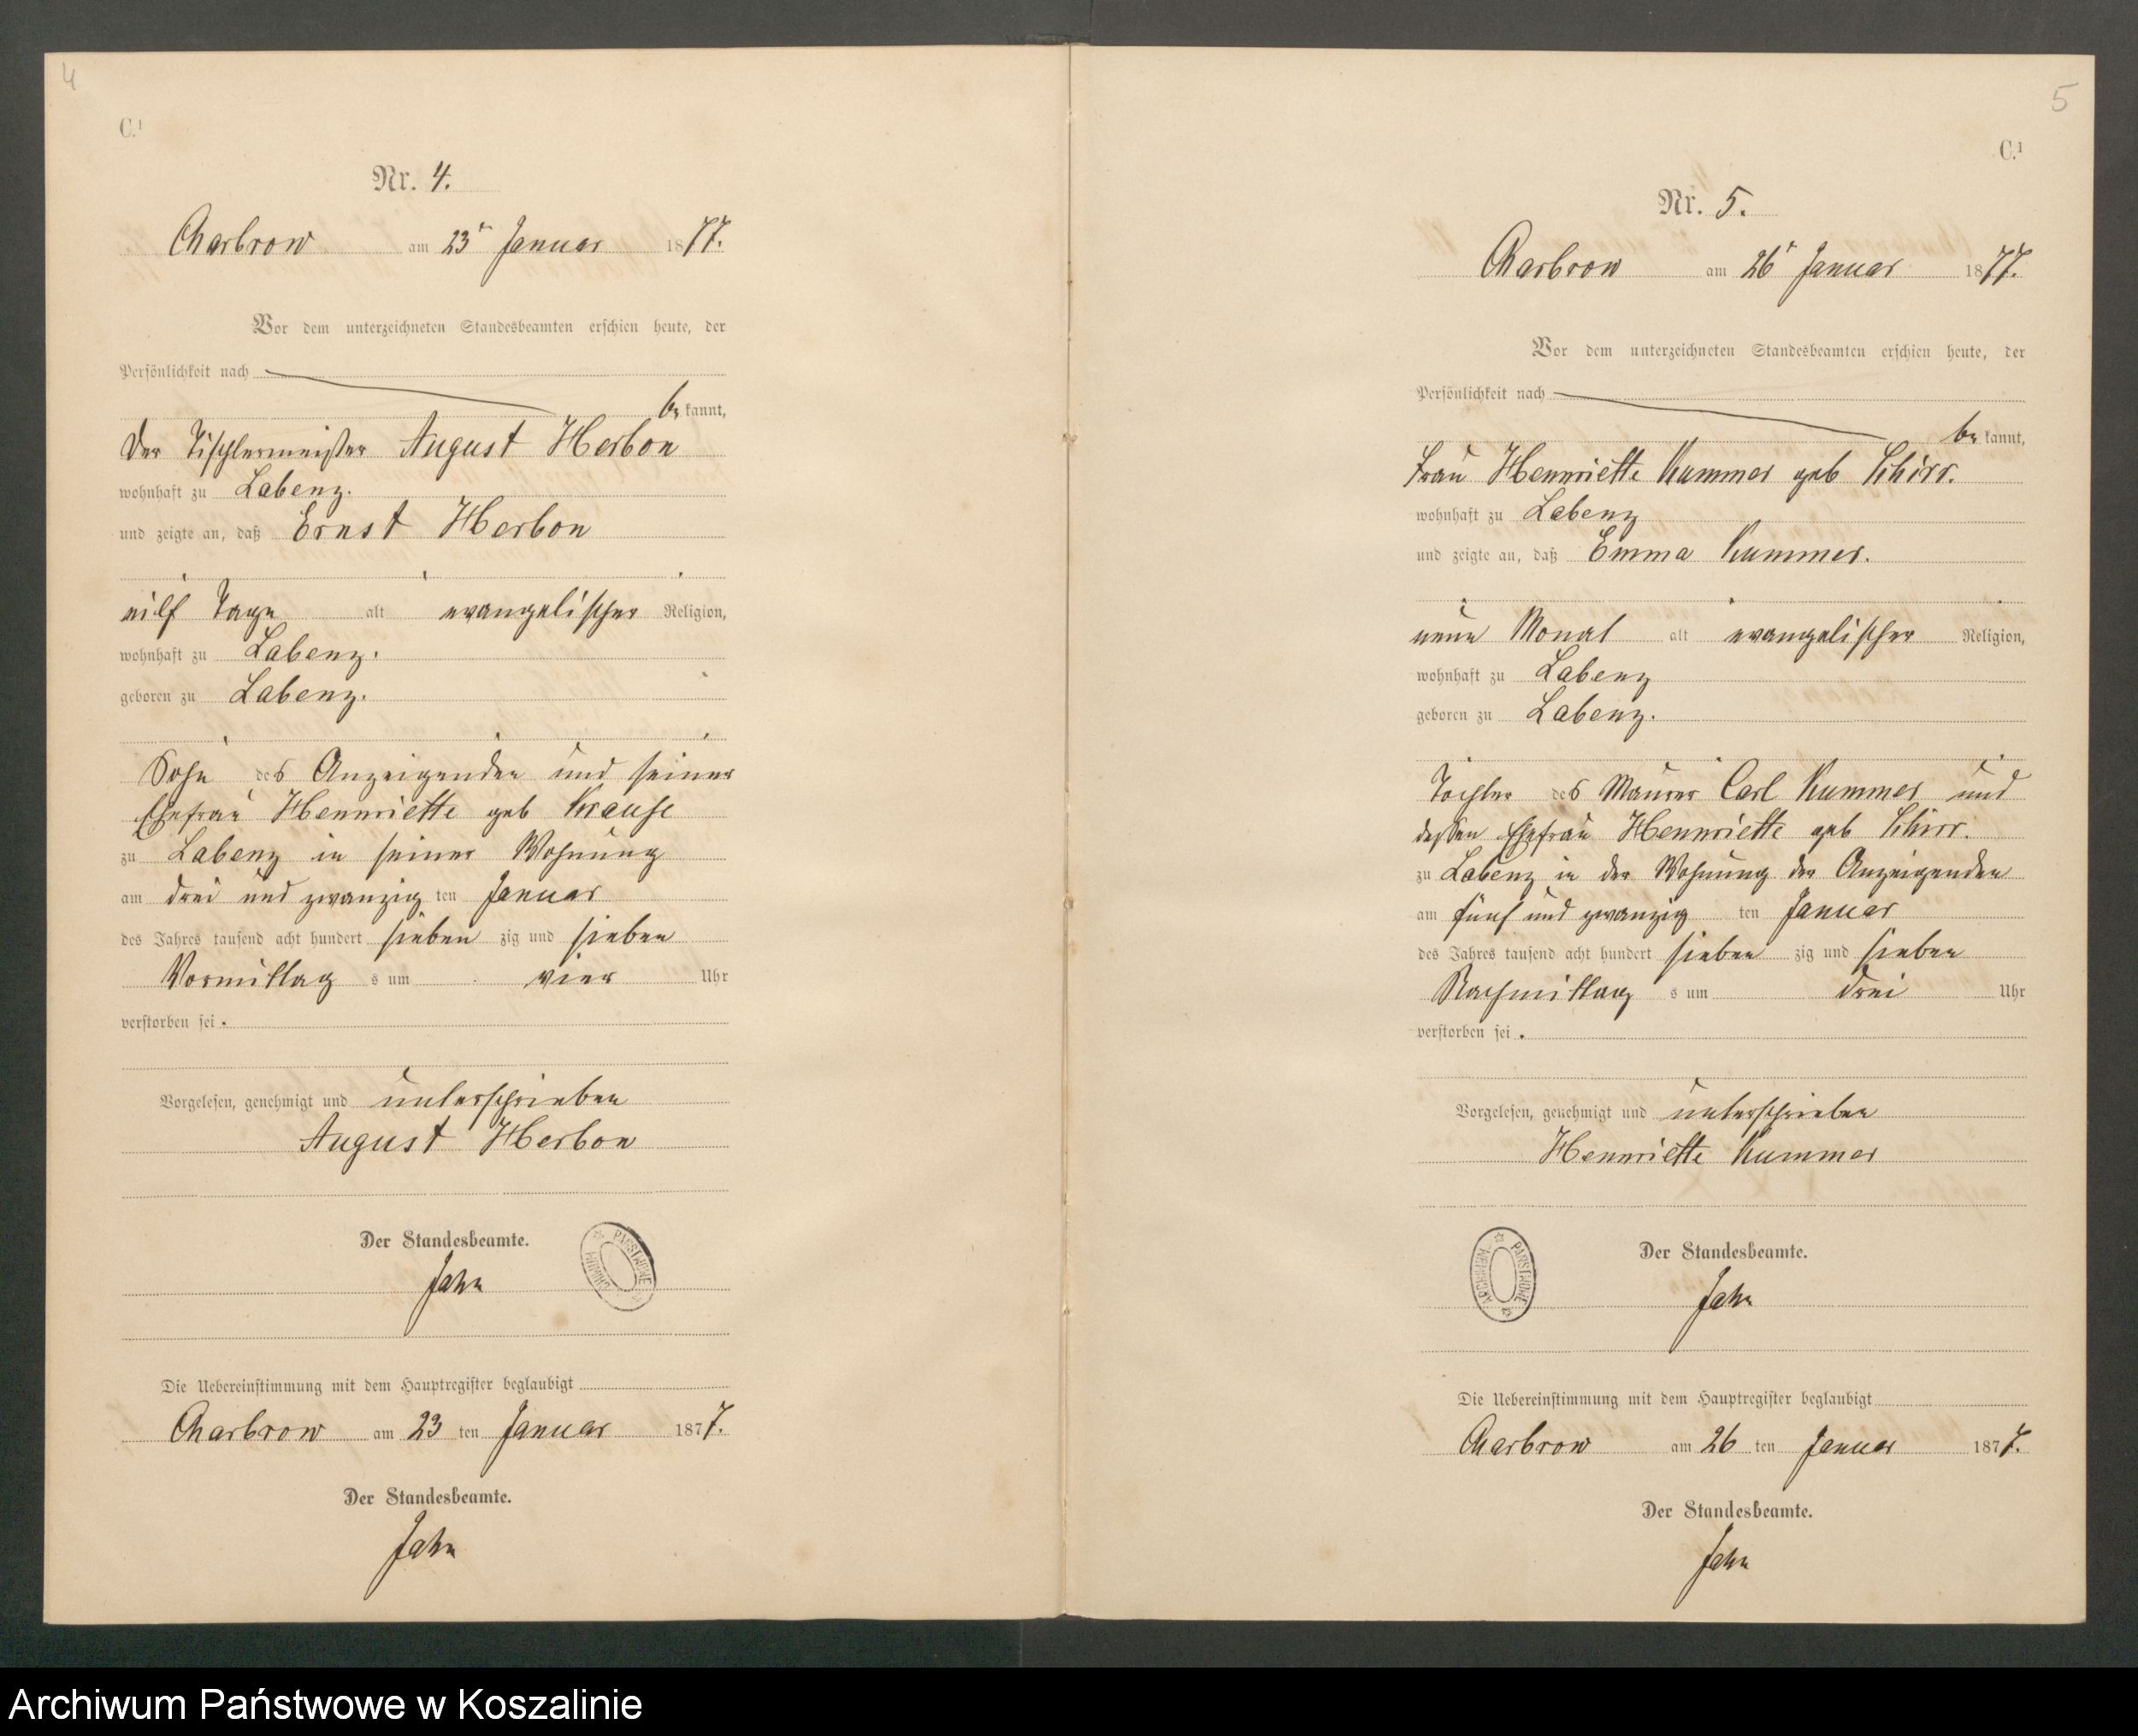 4
C.¹
Nr. 4.
Charbrow am 23ᵗ Januar 1877.
Vor dem unterzeichneten Standesbeamten erschien heute, der
Persönlichkeit nach
bekannt,
Der Tischlermeister August Herbon
wohnhaft zu Labenz.
und zeigte an, daß Ernst Herbon
eilf Tage alt evangelischer Religion,
wohnhaft zu Labenz.
geboren zu Labenz.
Sohn des Anzeigenden und seiner
Ehefrau Hennriette geb Krause
zu Labenz in seiner Wohnung
am drei und zwanzig ten Januar
des Jahres tausend acht hundert sieben zig und sieben
Vormittag s um vier Uhr
verstorben sei.
Vorgelesen, genehmigt und unterschrieben
August Herbon
Der Standesbeamte.
Jahn
ARCHIWUM PAŃSTWOWE
Die Uebereinstimmung mit dem Hauptregister beglaubigt
Charbrow am 23 ten Januar 1877.
Der Standesbeamte.
Jahn
5
C.¹
Nr. 5.
Charbrow am 26ᵗ Januar 1877.
Vor dem unterzeichneten Standesbeamten erschien heute, der
Persönlichkeit nach
bekannt,
Frau Hennriette Kummer geb
wohnhaft zu Labenz
und zeigte an, daß Emma Kummer.
neun Monat alt evangelischer Religion,
wohnhaft zu Labenz
geboren zu Labenz.
Tochter des Maurer Carl Kummer und
dessen Ehefrau Hennriette geb
zu Labenz in der Wohnung der Anzeigenden
am fünf und zwanzig ten Januar
des Jahres tausend acht hundert sieben zig und sieben
Nachmittag s um drei Uhr
verstorben sei.
Vorgelesen, genehmigt und unterschrieben
Hennriette Kummer
Der Standesbeamte.
Jahn
ARCHIWUM PAŃSTWOWE
Die Uebereinstimmung mit dem Hauptregister beglaubigt
Charbrow am 26 ten Januar 1877.
Der Standesbeamte.
Jahn
Archiwum Państwowe w Koszalinie